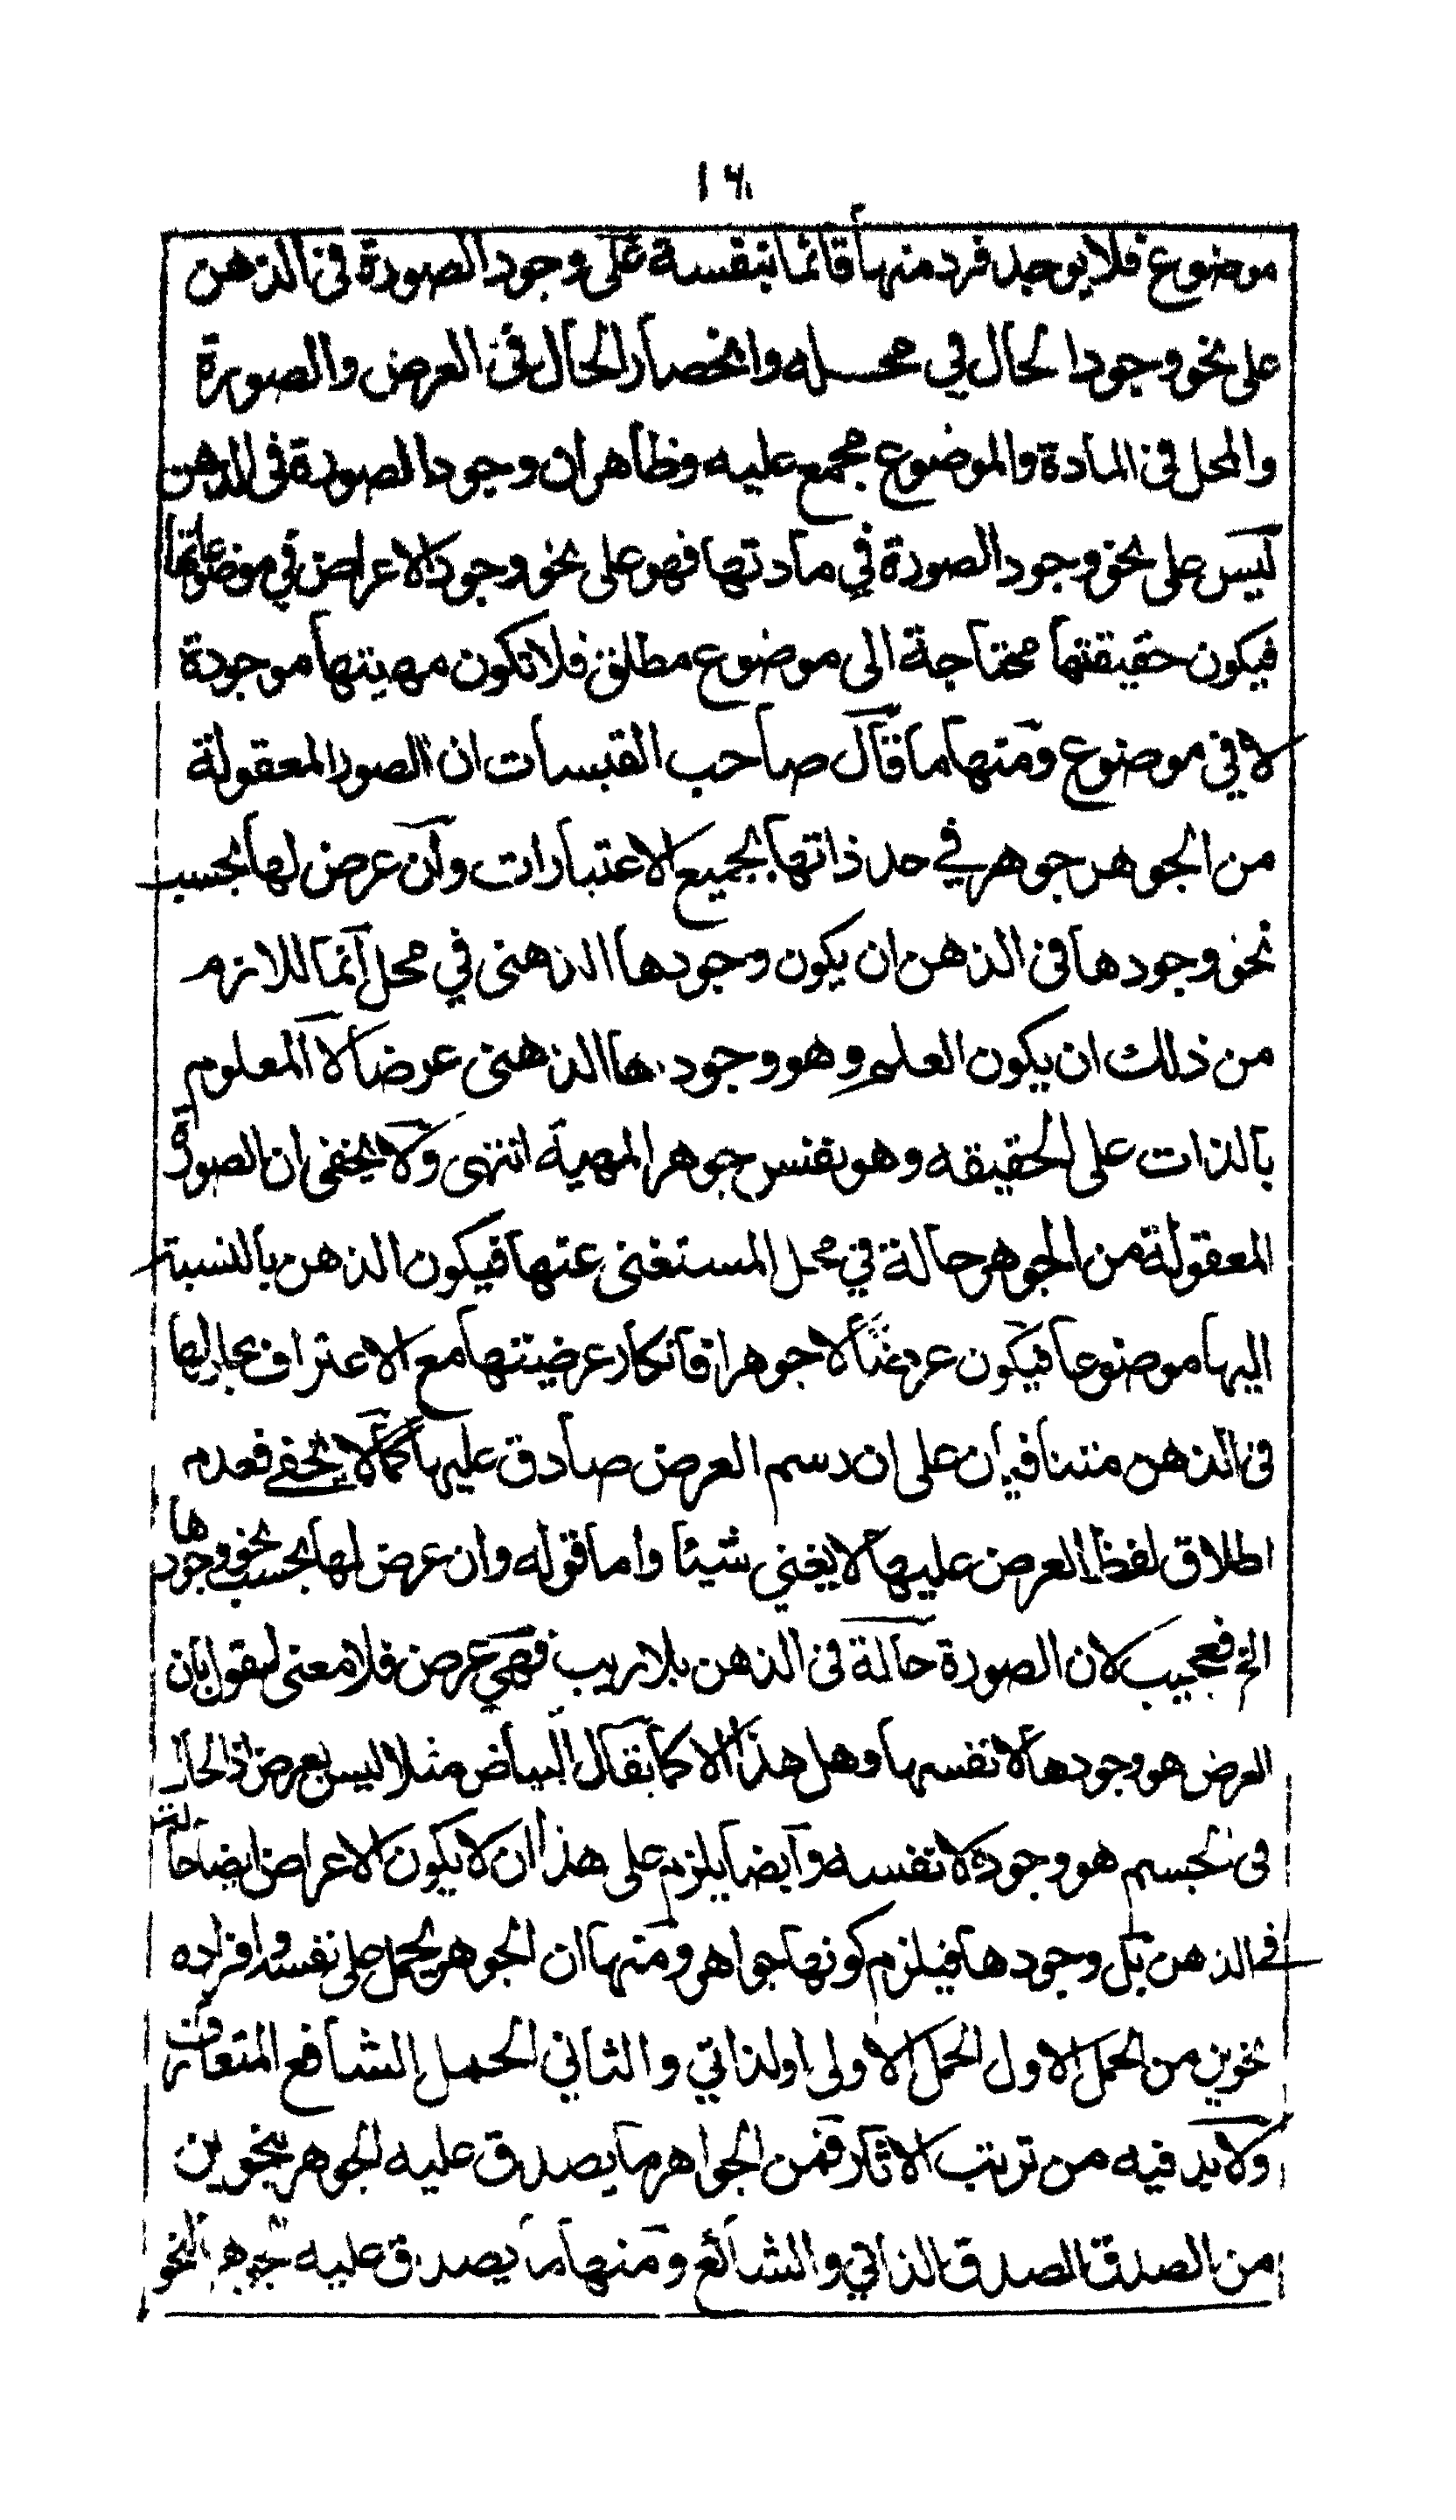 ١٦
موضوع فلا يوجد فرد منها قائما بنفسه على وجود الصورة في الذهن
على نحو وجود الحال في محله وانحصار الحال في العرض والصورة
والمحل في المادة والموضوع مجمع عليه وظاهر ان وجود الصورة في الذهن
ليس على نحو وجود الصورة في مادتها فهو على نحو وجود الاعراض في موضوعاتها
فيكون حقيقتها محتاجة الى موضوع مطلق فلا تكون مهيتها موجودة
لا في موضوع ومنها ما قال صاحب القبسات ان الصور المعقولة
من الجوهر جوهر في حد ذاتها بجميع الاعتبارات وان عرض لها بحسب
نحو وجودها في الذهن ان يكون وجودها الذهنى في محل انما اللازم
من ذلك ان يكون العلم وهو وجودها الذهنى عرضا لا المعلوم
بالذات على الحقيقه وهو نفس جوهر المهية انتهى ولا يخفى ان الصورة
المعقولة من الجوهر حالة في محل المستغنى عنها فيكون الذهن بالنسبة
اليها موضوعا فيكون عرضا لا جوهرا فانكار عرضيتها مع الاعتراف بحلولها
في الذهن متنافيان على ان رسم العرض صادق عليها كما لا يخفى فعدم
اطلاق لفظ العرض عليها لا يغنى شيئا واما قوله وان عرض لها بحسب نحو وجودها
الخ فعجيب لان الصورة حالة في الذهن بلا ريب فهي عرض فلا معنى للقول بان
العرض هو وجودها لا نفسها وهل هذا الا كما يقال البياض مثلا ليس بعرض اذ الحال
في الجسم هو وجوده لا نفسه وايضا يلزم على هذا ان لا يكون الاعراض ايضا حالة
في الذهن بل وجودها فيلزم كونها جواهر ومنها ان الجوهر يحمل على نفسه وافراده
نحوين من الحمل الاول الحمل الاولى اولذاتي والثاني الحمل الشائع المتعارف
ولا بد فيه من ترتب الاثار فمن الجواهر ما يصدق عليه الجوهر بنحوين
من الصدق الصدق الذاتي والشائع ومنها ما يصدق عليه جوهر النحو